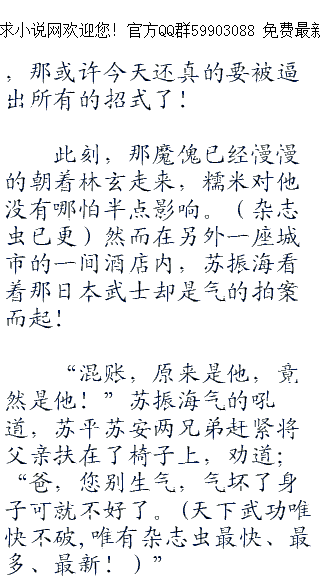 求小说网欢迎您！官方QQ群59903088 免费最新
，那或许今天还真的要被逼
出所有的招式了！
此刻，那魔傀已经慢慢
的朝着林玄走来，糯米对他
没有哪怕半点影响。（杂志
虫已更）然而在另外一座城
市的一间酒店内，苏振海看
着那日本武士却是气的拍案
而起！
“混账，原来是他，竟
然是他！”苏振海气的吼
道，苏平苏安两兄弟赶紧将
父亲扶在了椅子上，劝道；
“爸，您别生气，气坏了身
子可就不好了。(天下武功唯
快不破,唯有杂志虫最快、最
多、最新！)”